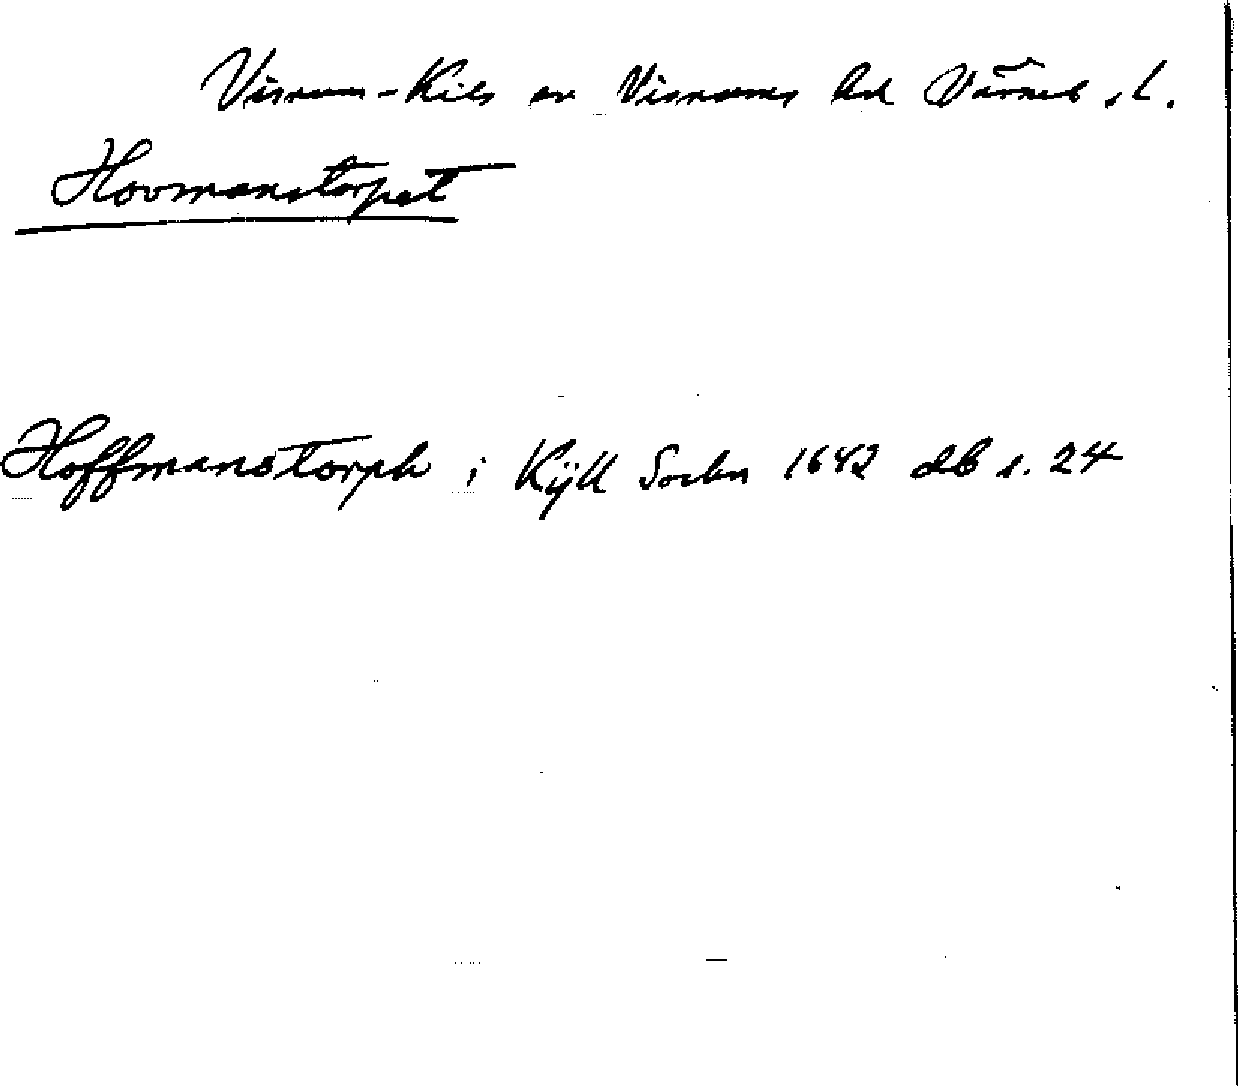 Visnum-Kils sn Visnums hd Värml. L.
Hovmanstorpet
Hoffmanstorph i Kÿll Sockn 1642 db s. 24